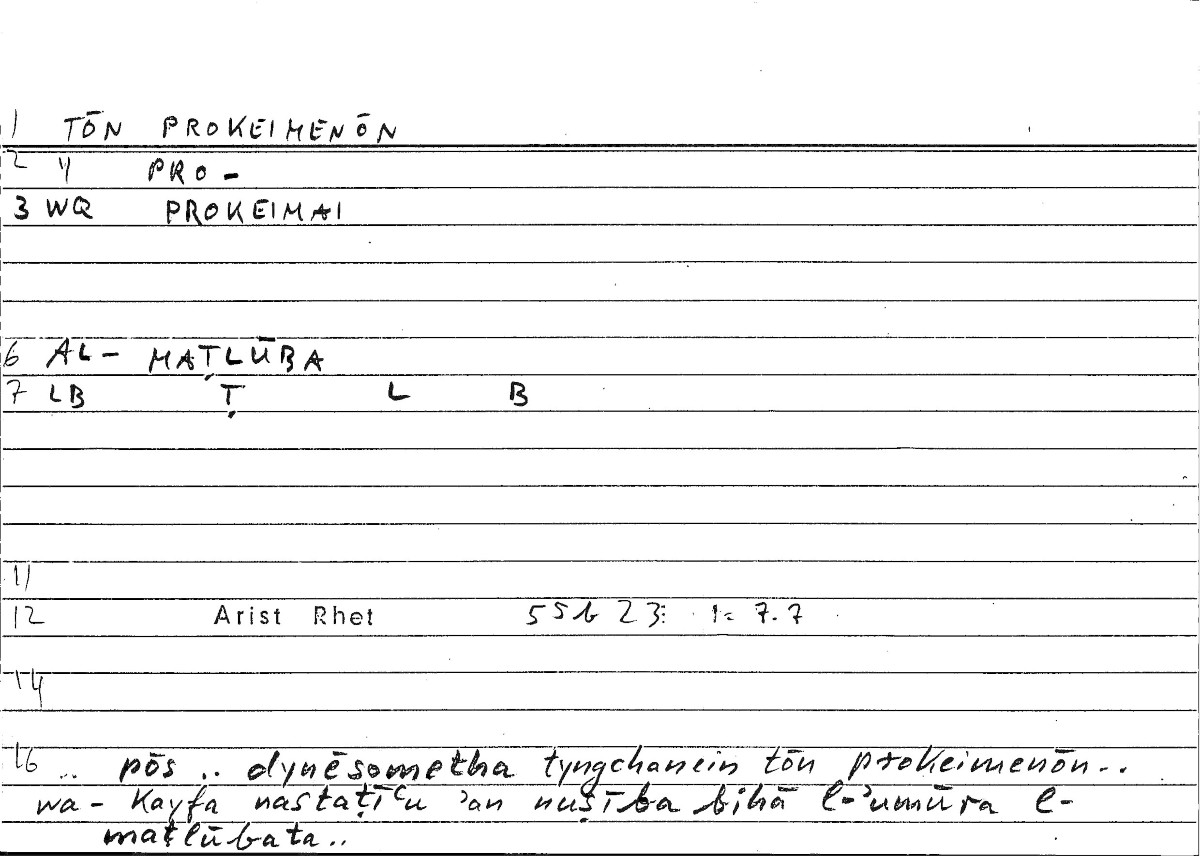 1 TŌN PROKEIMENŌN
2 " PRO-
3 WQ PROKEIMAI
6 AL- MAṬLŪBA
7 LB Ṭ L B
11
12 Arist Rhet 55b 23: 1= 7.7
14
16 .. pōs .. dynēsometha tyngchanein tōn prokeimenōn..
wa- kayfa nastaṭīʿu ʾan nuṣība bihā l-ʾumūra l-
maṭlūbata..